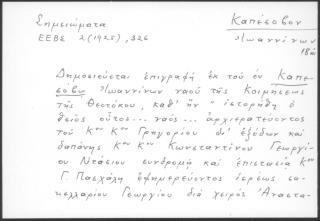 Σημειώματα
Καπέσοβον
ΕΕΒΣ 2(1925), 326
Ἰωαννίνων
18ος
Δημοσιεύεται ἐπιγραφή ἐκ τοῦ ἐν Καπε-
σόβῳ Ἰωαννίνων ναοῦ τῆς Κοιμήσεως
τῆς Θεοτόκου, καθ' ἥν "ἱστορήθη ὁ
θεῖος οὗτος... ναός... ἀρχιερατεύοντος
τοῦ Κου Κου Γρηγορίου δι' ἐξόδων καί
δαπάνης Κου Κου Κωνσταντίνου Γεωργί-
ου συνδρομῇ καί ἐπιστασίᾳ Κου
Γ. Πασχάλη ἐφημερεύοντος ἱερέως σα-
κελλαρίου Γεωργίου διά χειρός Ἀναστα-